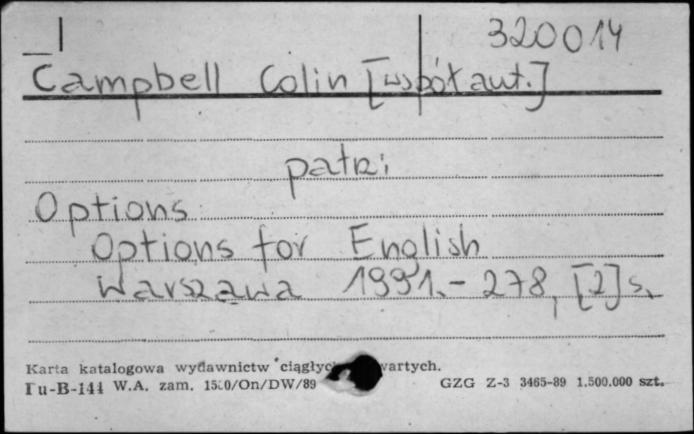 I 320014
Campbell Colin [współaut.]
patrz:
Options
Options for English
Warszawa 1991. - 278, [2] s.
Karta katalogowa wydawnictw ciągłych wartych.
Tu-B-144 W.A. zam. /On/DW/89 GZG Z-3 3465-89 1.500.000 szt.